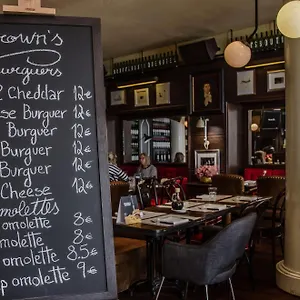 rown's
urguers
Cheddar 12€
se Burguer 12€
Burguer 12€
Burguer 12€
Burguer 12€
Cheese 12€
omolettes
omolette 8€
omolette 8€
omolette 8.5€
omolette 9€